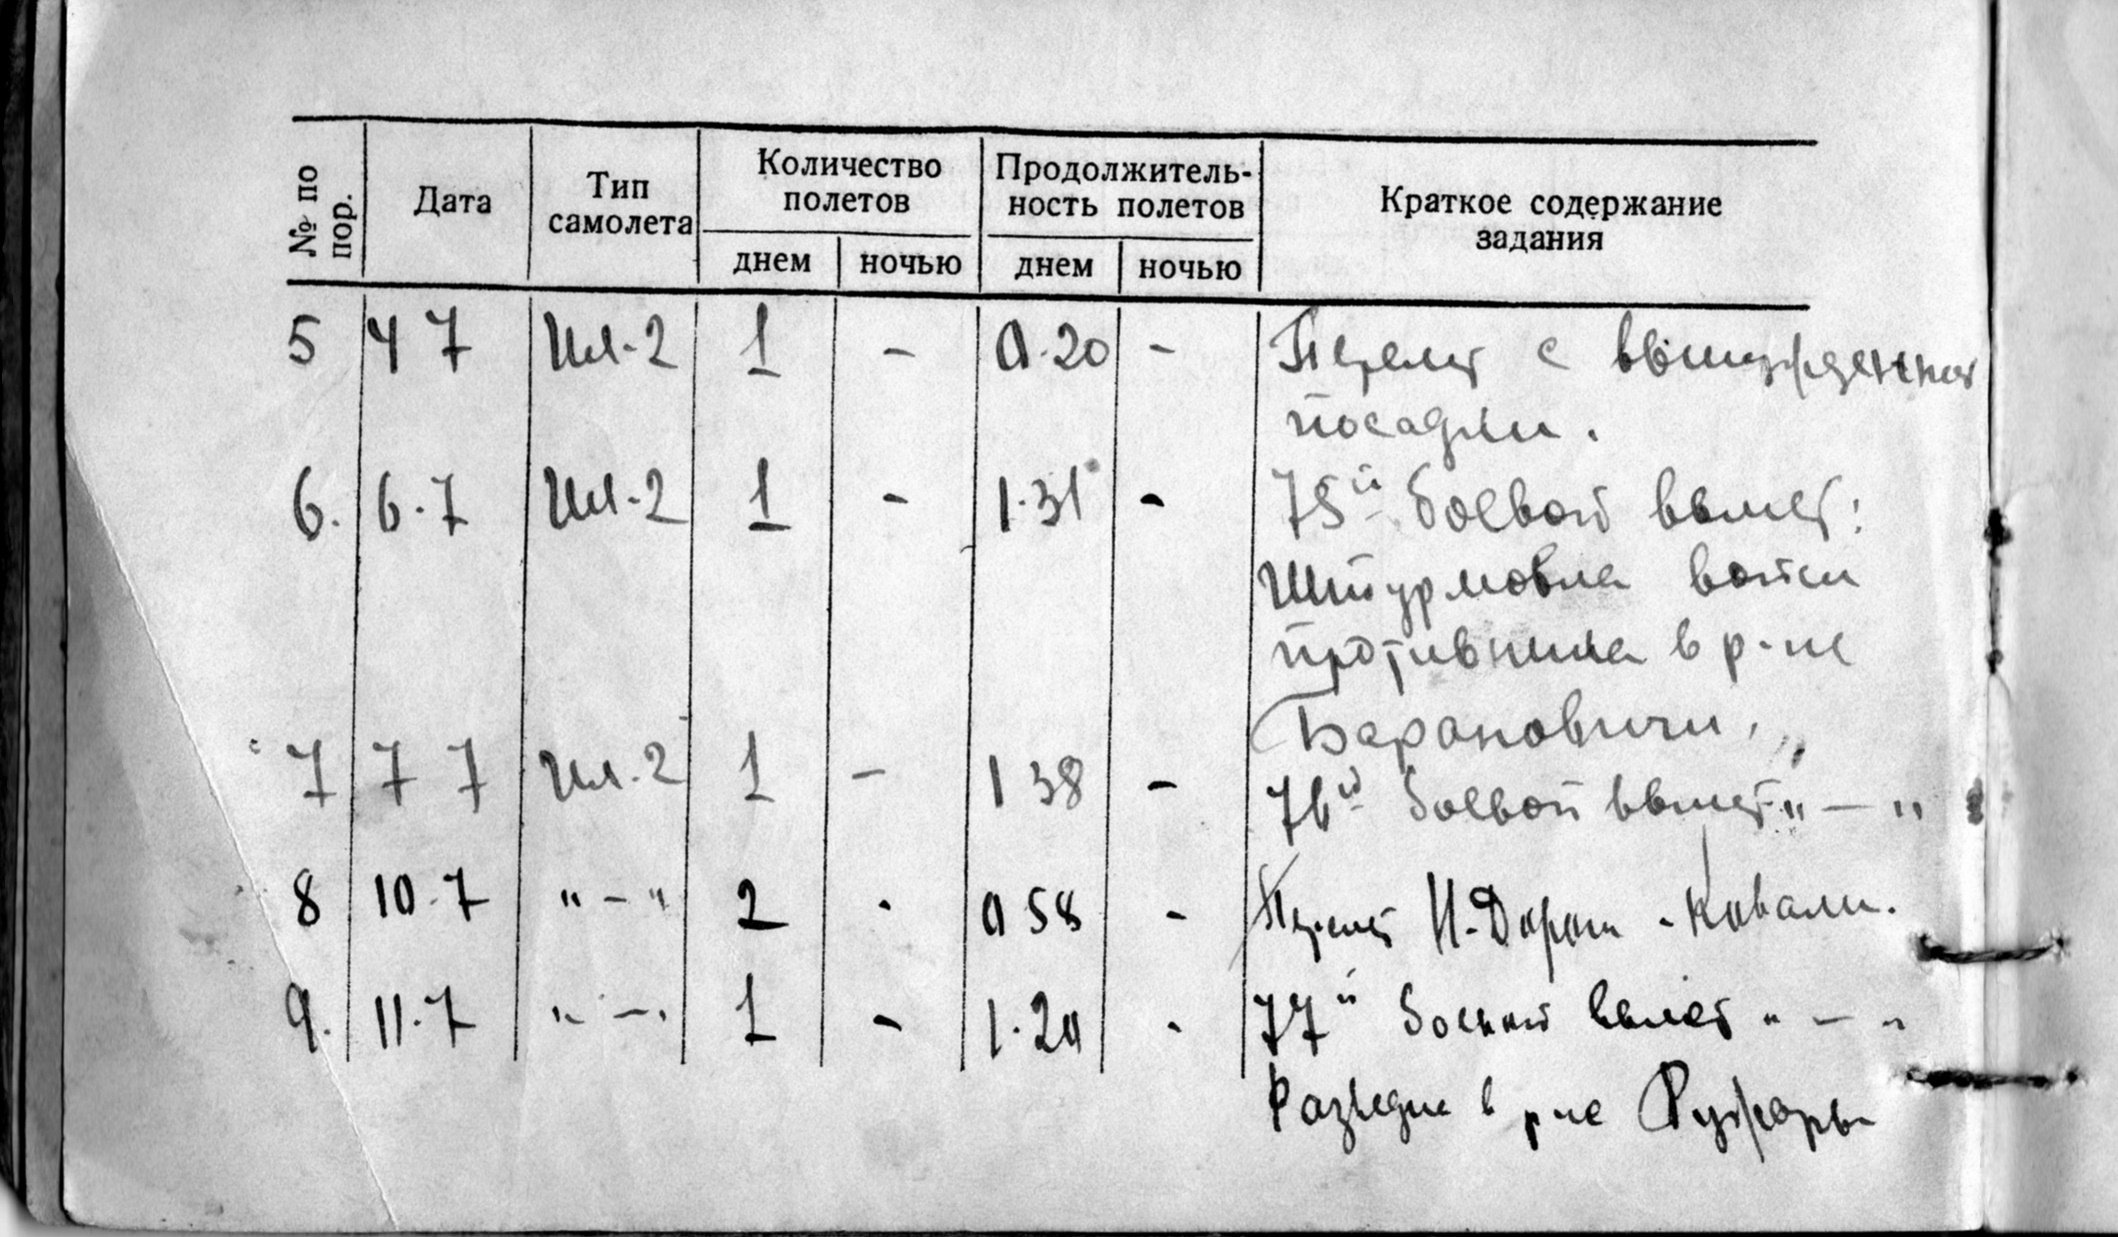 № по пор. Дата Тип самолета Количество полетов Продолжитель-ность полетов Краткое содержание задания
днем ночью днем ночью
5 4 7 Ил-2 1 - 0.20 - Перелет с вынужденной
посадки.
6. 6.7 Ил-2 1 - 1.31 - 75й боевой вылет:
Штурмовка войск
противника в р-не
Барановичи.
7 7 7 Ил-2 1 - 1 38 - 76й боевой вылет " — "
8 10.7 " - " 2 - 0 58 - Перелет Н-Дороги - Ковали.
9. 11.7 " - " 1 - 1.20 - 77й боевой вылет " — "
Разведка в р-не Ружаны